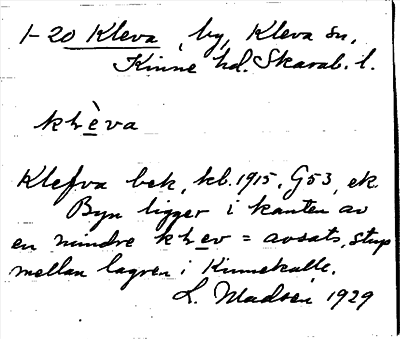 1-20 Kleva, by, Kleva sn,
Kinne hd. Skarab. l.
klèva
Klefva bek, kb. 1915, G53, ek.
Byn ligger i kanten av
en mindre klev = avsats, stup
mellan lagren i Kinnekulle.
L. Madsén 1929